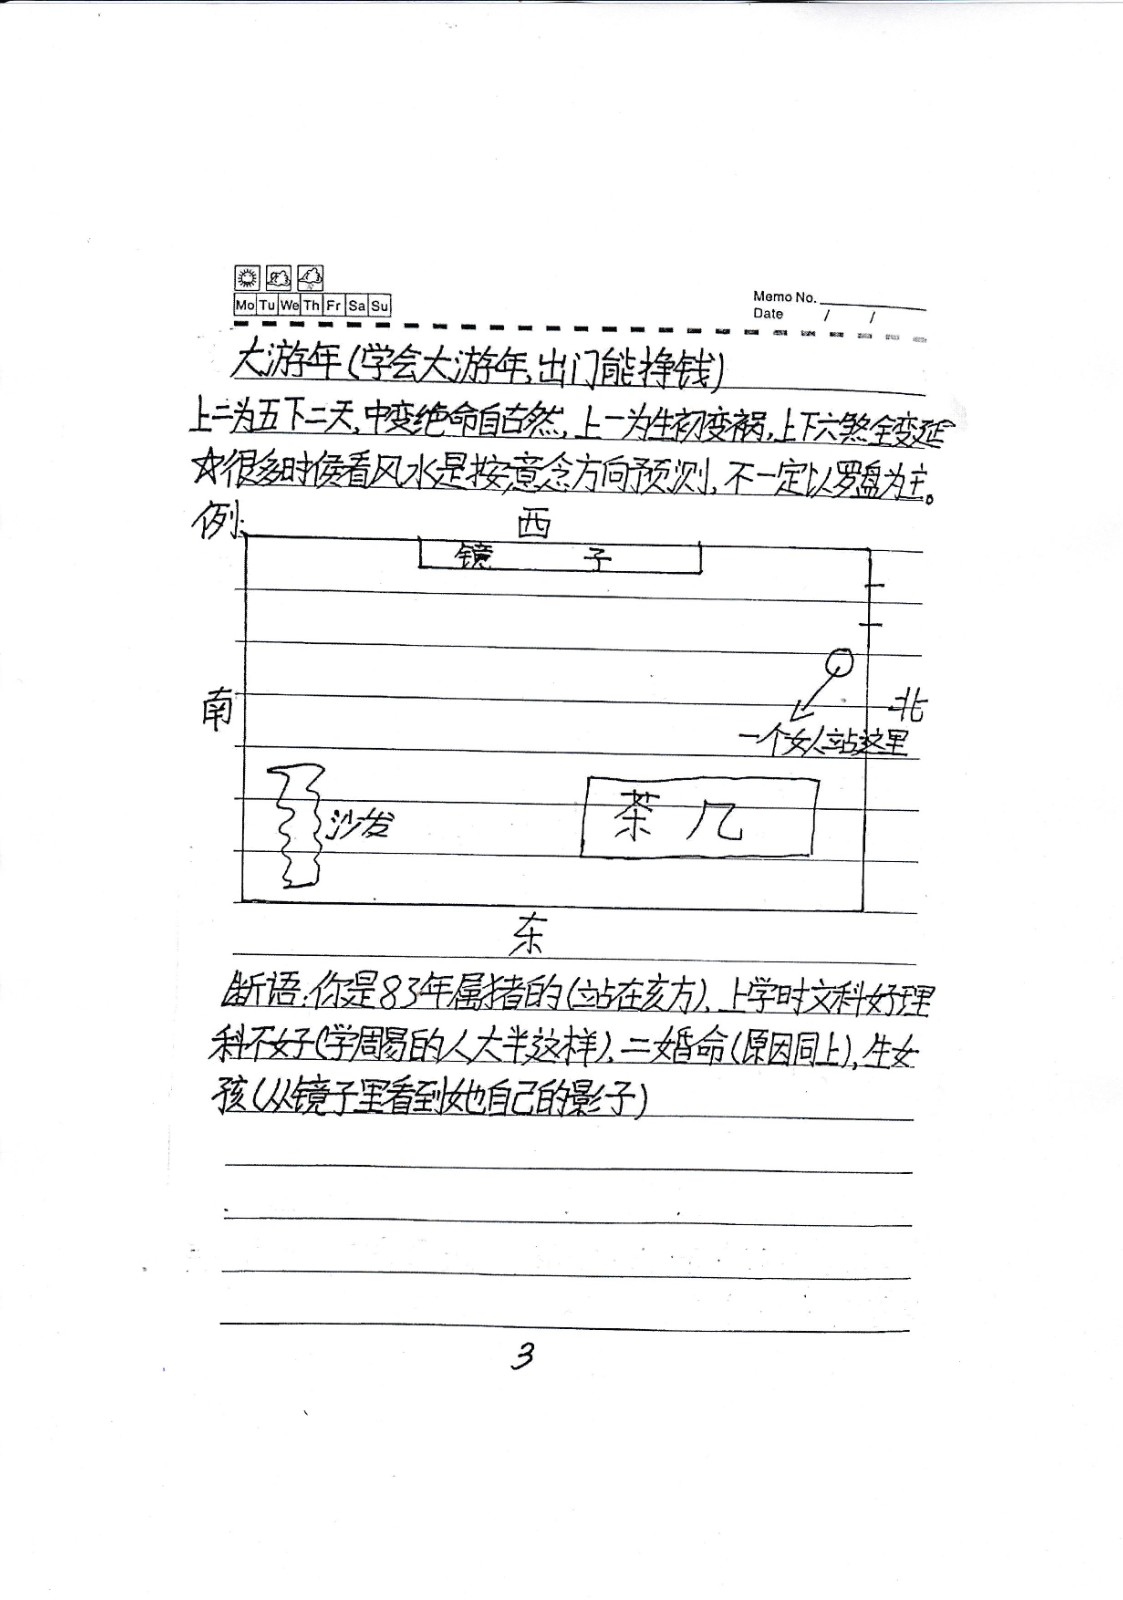 Mo Tu We Th Fr Sa Su
Memo No.
Date / /
大游年(学会大游年,出门能挣钱)
上二为五下二天,中变绝命自古然,上一为生初变祸,上下六煞全变延
☆很多时侯看风水是按意念方向预测,不一定以罗盘为主。
例:
西
镜 子
南
北
一个女人站这里
沙发
茶 几
东
断语:你是83年属猪的(站在亥方),上学时文科好理
科不好(学周易的人大半这样),二婚命(原因同上),生女
孩(从镜子里看到她自己的影子)
3